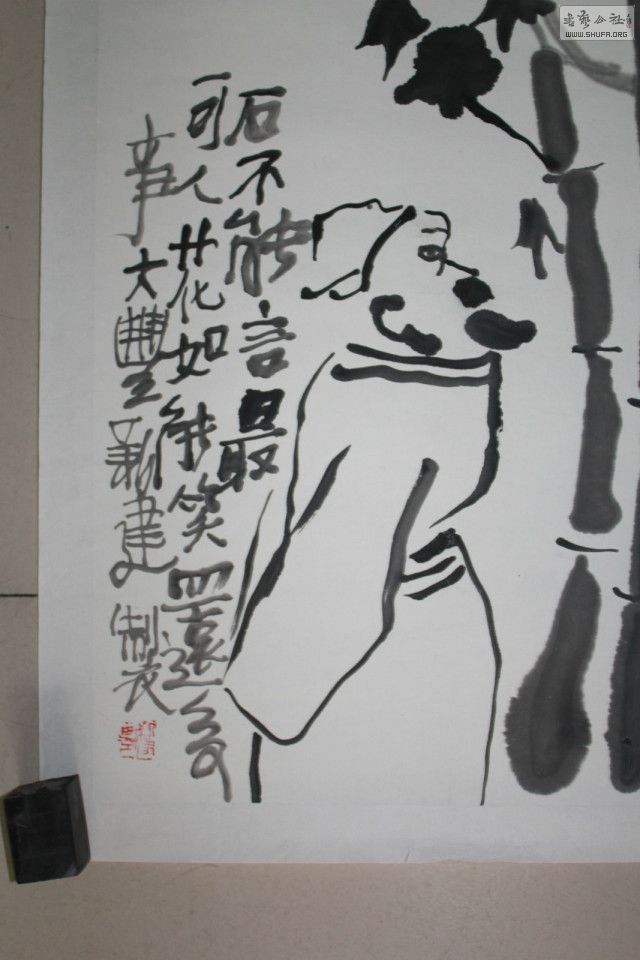 石不能言最
可人花如能笑還多
事大豐建制
书艺公社
WWW.SHUFA.ORG